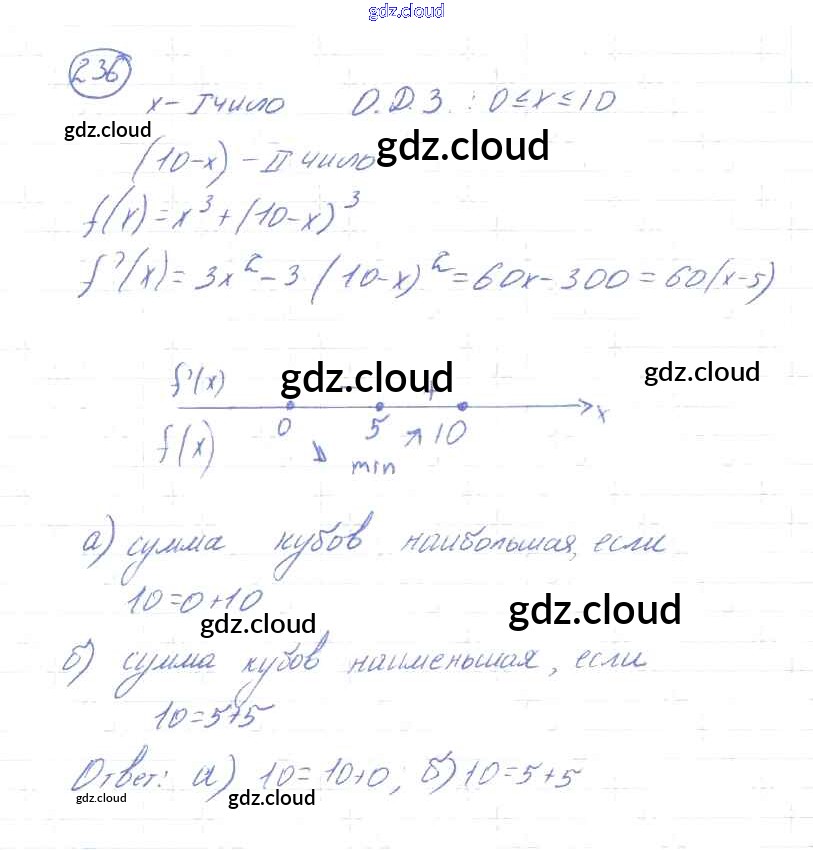 gdz.cloud
236
x - I число О.Д.З. : 0≤x≤10
gdz.cloud
(10-x) - II число
gdz.cloud
f(x)=x³+(10-x)³
f'(x)=3x²-3(10-x)²=60x-300=60(x-5)
f'(x) gdz.cloud - + gdz.cloud
0 5 ↗ 10 x
f(x) ↘ min
а) сумма кубов наибольшая, если
10=0+10
gdz.cloud gdz.cloud
б) сумма кубов наименьшая, если
10=5+5
Ответ: а) 10=10+0; б) 10=5+5
gdz.cloud gdz.cloud